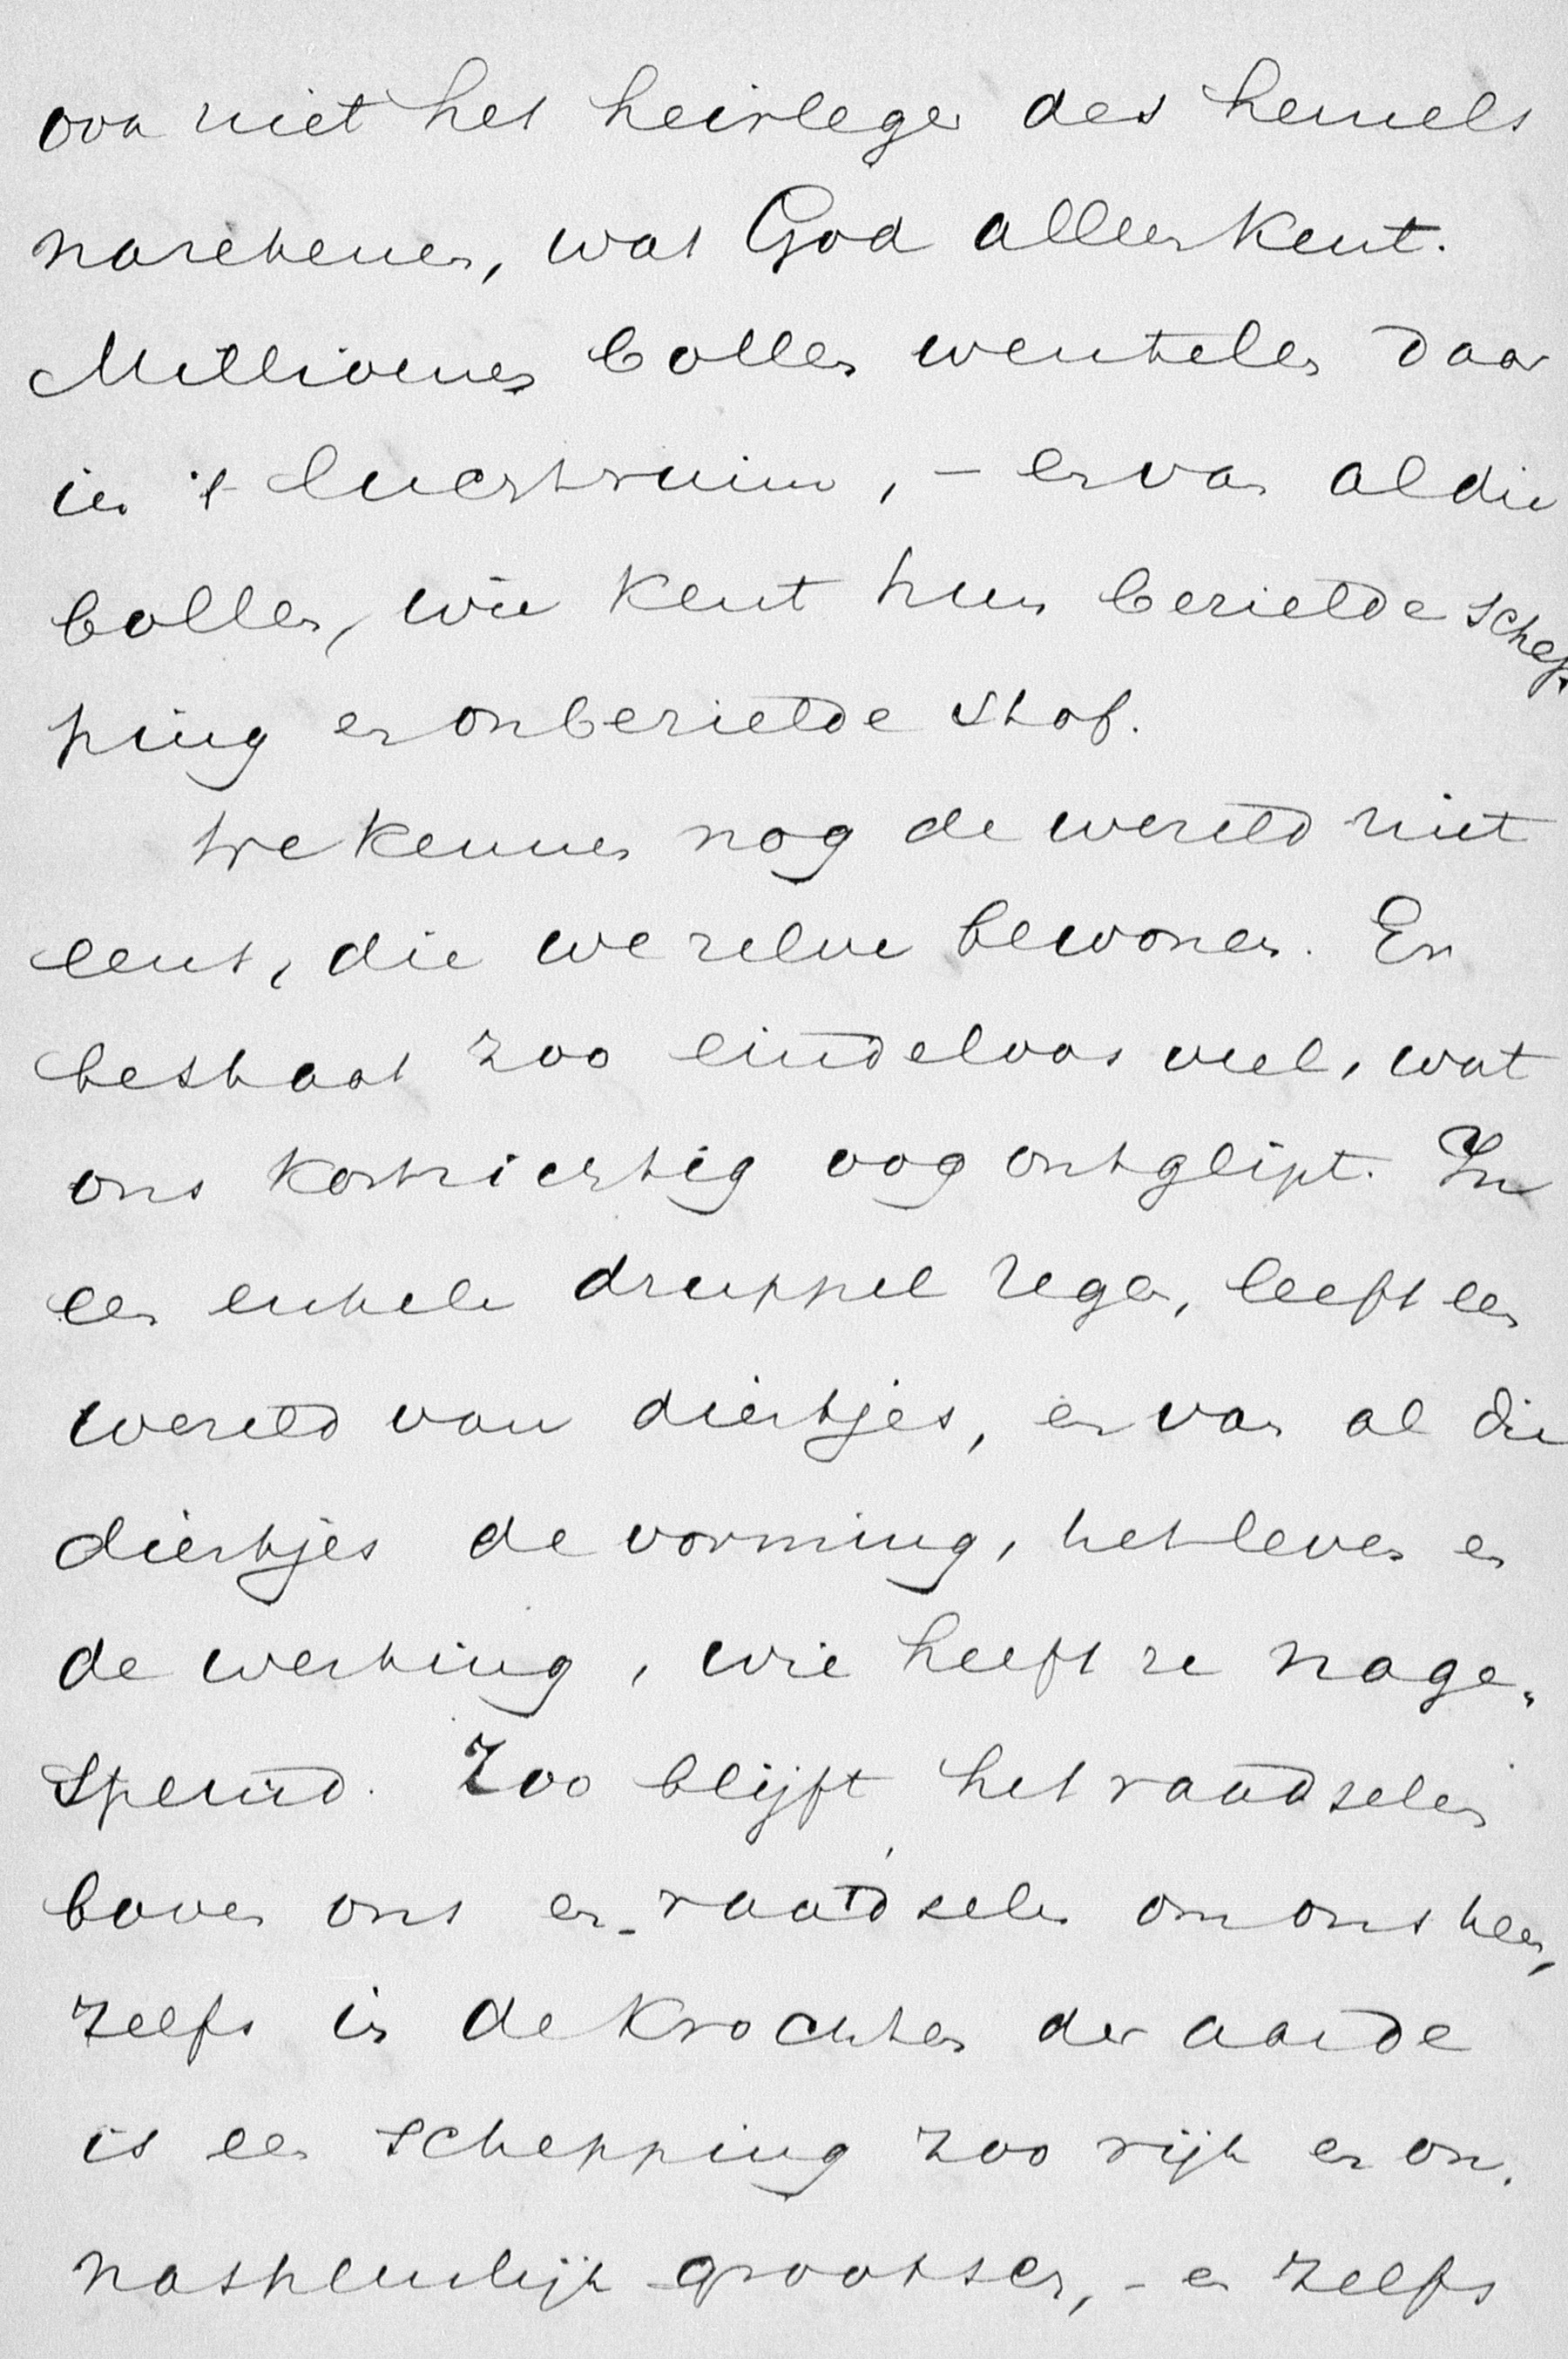 ook niet het heirleger des hemels
narekenen, wat God alleen kent.
Millioenen bollen wentelen daar
in 't luchtruim, - en van al die
bollen, wie kent hun bezielde schep-
ping en onbezielde stof.
We kennen nog de wereld niet
eens, die we zelve bewonen. Er
bestaat zoo eindeloos veel, wat
ons kortzichtig oog ontglipt. In
een enkele druppel regen, leeft een
wereld van diertjes, en van al die
diertjes de vorming, het leven en
de werking, wie heeft ze nage-
speurd. Zoo blijft het raadselen
boven ons en raadselen om ons heen,
zelfs in de krochten der aarde
is een schepping zoo rijk en on-
naspeurlijk grootsch, - en zelfs